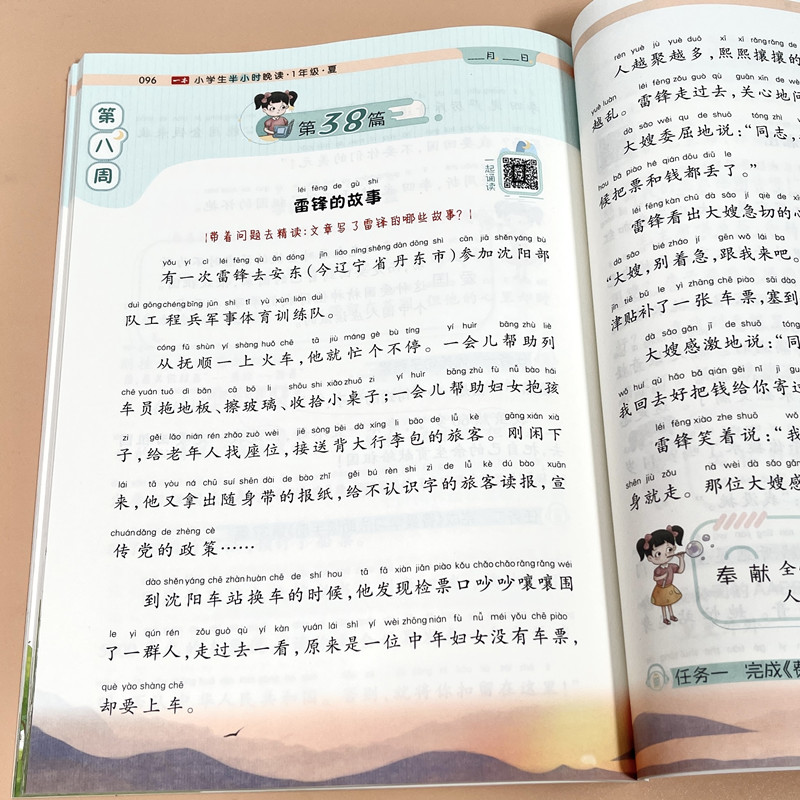 096 一本 小学生半小时晚读·1年级·夏
月 日
第八周
第38篇
一起诵读
léi fēng de gù shi
雷锋的故事
带着问题去精读:文章写了雷锋的哪些故事?
yǒu yí cì léi fēng qù ān dōng jīn liáo níng shěng dān dōng shì cān jiā shěn yáng bù
有一次雷锋去安东(今辽宁省丹东市)参加沈阳部
duì gōng chéng bīng jūn shì tǐ yù xùn liàn duì
队工程兵军事体育训练队。
cóng fǔ shùn yí shàng huǒ chē tā jiù máng gè bù tíng yí huìr bāng zhù liè
从抚顺一上火车,他就忙个不停。一会儿帮助列
chē yuán tuō dì bǎn cā bō li shōu shi xiǎo zhuō zi yí huìr bāng zhù fù nǚ bào hái
车员拖地板、擦玻璃、收拾小桌子;一会儿帮助妇女抱孩
zi gěi lǎo nián rén zhǎo zuò wèi jiē sòng bēi dà xíng li bāo de lǚ kè gāng xián xià
子,给老年人找座位,接送背大行李包的旅客。刚闲下
lái tā yòu ná chū suí shēn dài de bào zhǐ gěi bú rèn shi zì de lǚ kè dú bào xuān
来,他又拿出随身带的报纸,给不认识字的旅客读报,宣
chuán dǎng de zhèng cè
传党的政策……
dào shěn yáng chē zhàn huàn chē de shí hou tā fā xiàn jiǎn piào kǒu chāo chāo rāng rāng wéi
到沈阳车站换车的时候,他发现检票口吵吵嚷嚷围
le yì qún rén zǒu guò qù yí kàn yuán lái shì yí wèi zhōng nián fù nǚ méi yǒu chē piào
了一群人,走过去一看,原来是一位中年妇女没有车票,
què yào shàng chē
却要上车。
rén yuè jù yuè duō xī xī rǎng rǎng de
人越聚越多,熙熙攘攘的
yuè luàn léi fēng zǒu guò qù guān xīn de wèn
越乱。雷锋走过去,关心地问
dà sǎo wěi qu de shuō tóng zhì
大嫂委屈地说:“同志,
hou bǎ piào hé qián dōu diū le
候把票和钱都丢了。”
léi fēng kàn chū dà sǎo jí qiè de xīn
雷锋看出大嫂急切的心
dà sǎo bié zháo jí gēn wǒ lái ba
“大嫂,别着急,跟我来吧。
jīn tiē bǔ le yì zhāng chē piào sāi dào
津贴补了一张车票,塞到
dà sǎo gǎn jī de shuō tóng
大嫂感激地说:“同
wǒ huí qù hǎo bǎ qián gěi nǐ jì
我回去好把钱给你寄过
léi fēng xiào zhe shuō wǒ
雷锋笑着说:“我
shēn jiù zǒu nà wèi dà sǎo gǎn
身就走。那位大嫂感
奉献 全
人
任务一 完成《